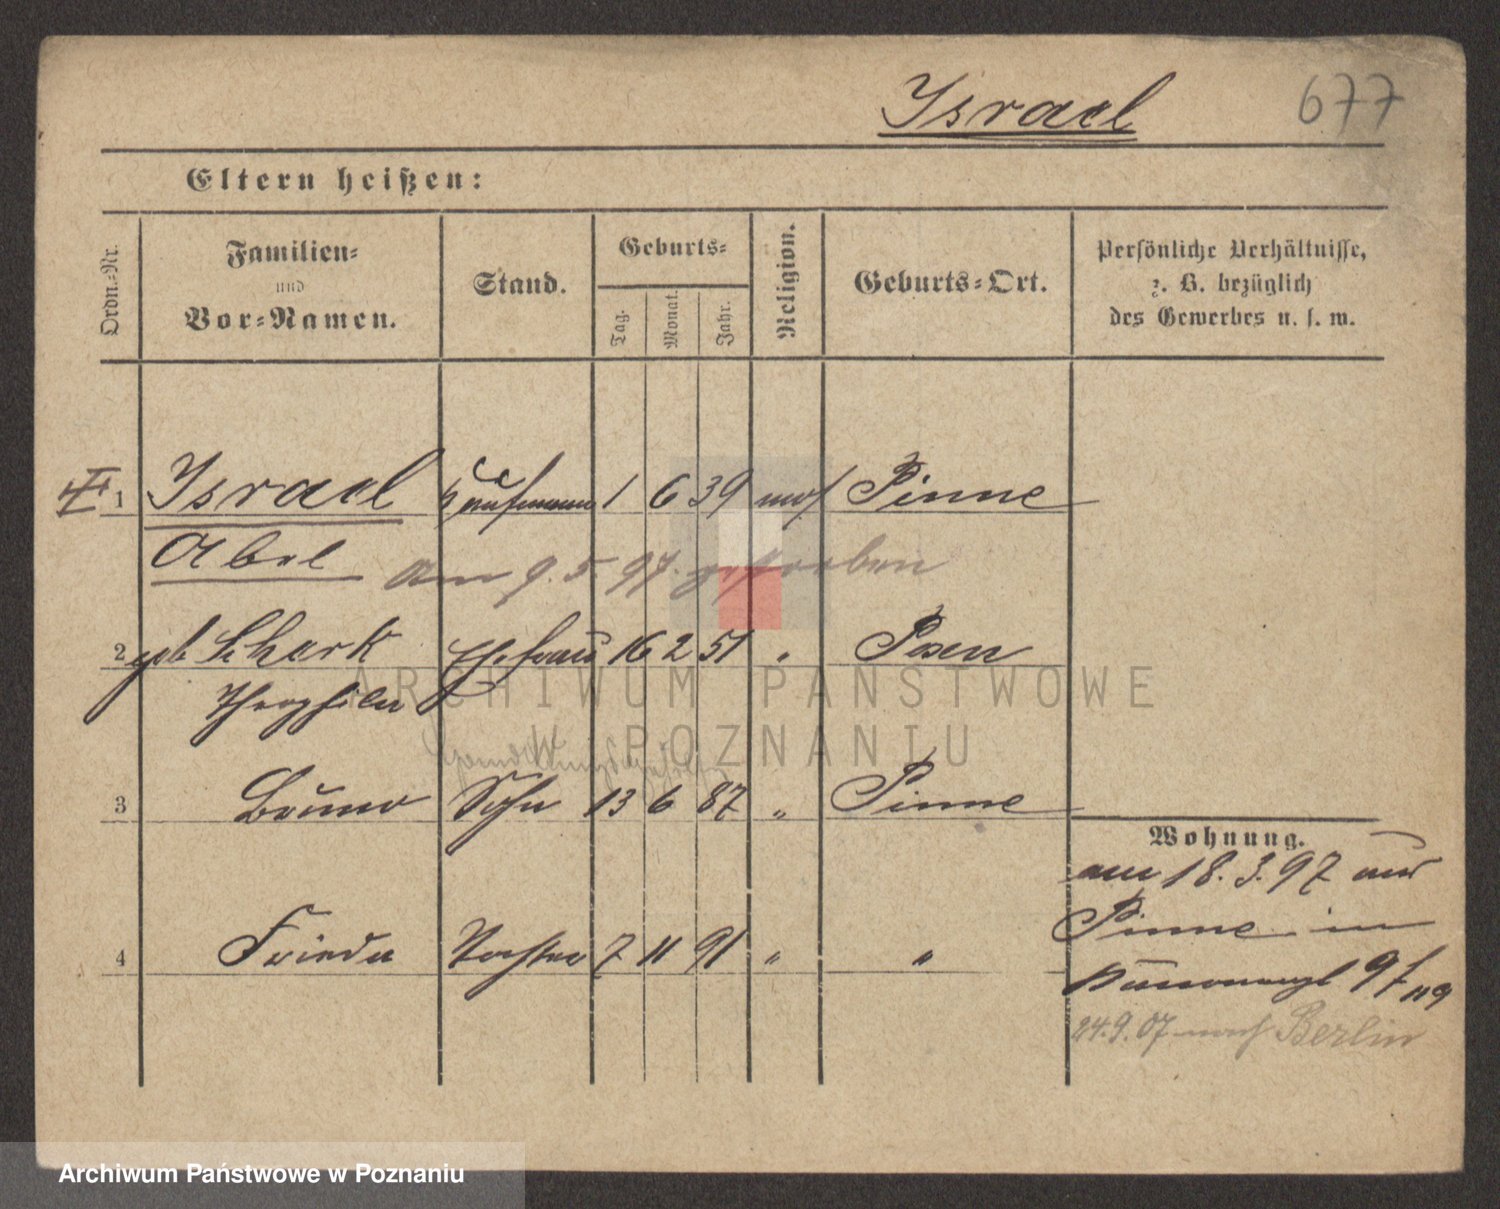 Israel 677
Eltern heißen:
Ordn.-Nr.
Familien-
und
Vor-Namen.
Stand.
Geburts-
Tag.
Monat.
Jahr.
Religion.
Geburts-Ort.
Persönliche Verhältnisse,
z. B. bezüglich
des Gewerbes u. s. w.
1 Israel Kaufmann 1 6 39 mos Pinne
Abel am 9. 5. 97. gestorben
2 geb Schark Ehefrau 16 2 51 " Posen
ARCHIWUM PAŃSTWOWE
W POZNANIU
3 Bruno Sohn 13 6 87 " Pinne
Wohnung.
am 18. 3. 97 aus
4 Frieda Tochter 7 11 91 " "
Pinne in
24. 9. 07 nach Berlin
Archiwum Państwowe w Poznaniu